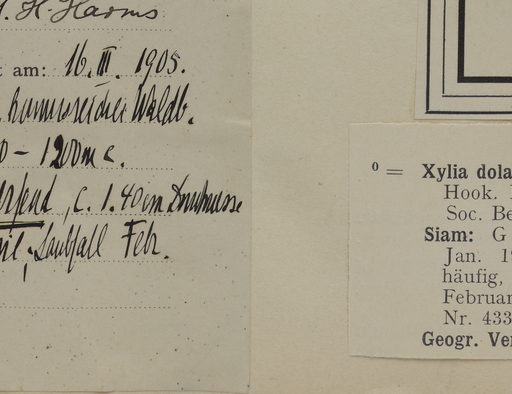 H. Harms
t am: 16. III. 1905.
humusreicher Waldb.
0 – 1200 m c.
werfend, c. 1.40 cm
Laubfall Febr.
0 = Xylia dola
Hook.
Soc. Be
Siam: G
Jan. 19
häufig,
Februar
Nr. 433
Geogr. Ver